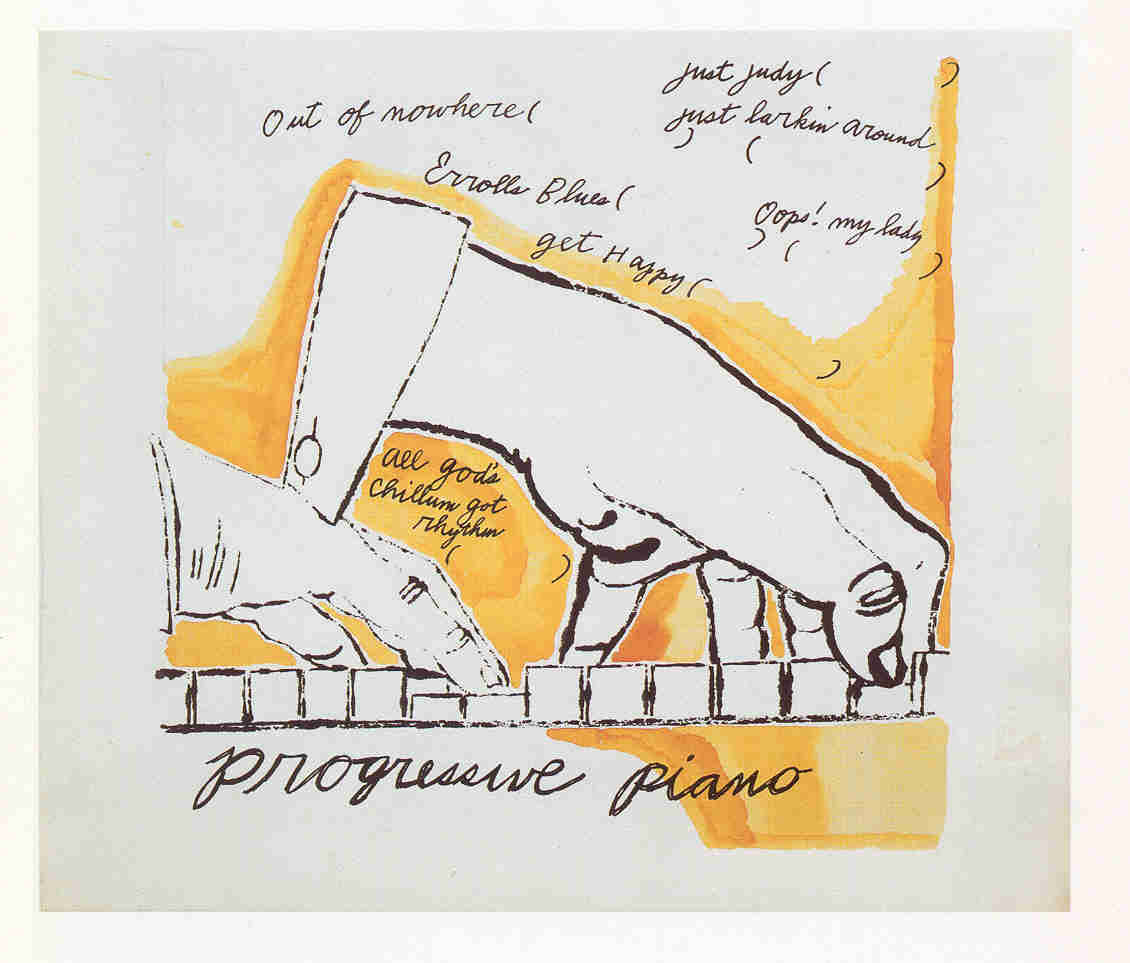 just judy (          )
Out of nowhere (
just larkin around
) (          )
Errolls Blues (
Oops! my lady
) (          )
get Happy (          )
all god's
chillum got
rhythm
(          )
progressive piano